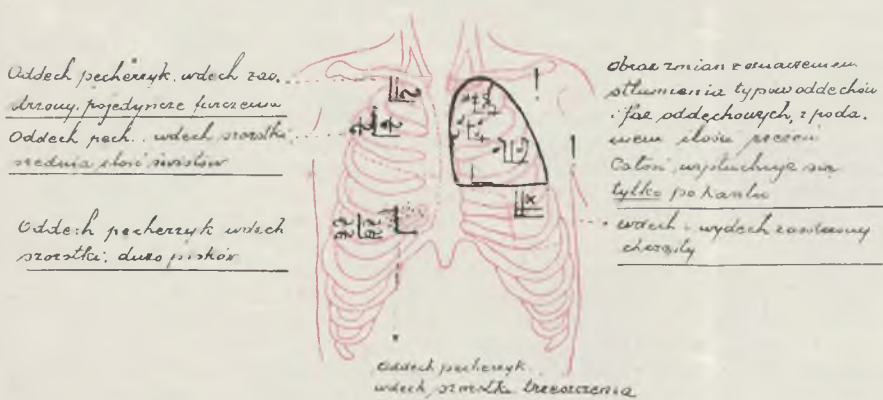 Oddech pęcherzyk. wdech zao.
strzony, pojedyncze furczenia
Oddech pęch.. wdech szorstki,
średnia ilość świstów
Oddech pęcherzyk wdech
szorstki, dużo pisków
Obraz zmian z oznaczeniem
stłumienia typów oddechów
i faz oddechowych, z poda.
niem ilości rzężeń
Całość wysłuchuje się
tylko po kaszlu
wdech i wydech zaostrzony
Oddech pęcherzyk.
wdech szorstki trzeszczenia